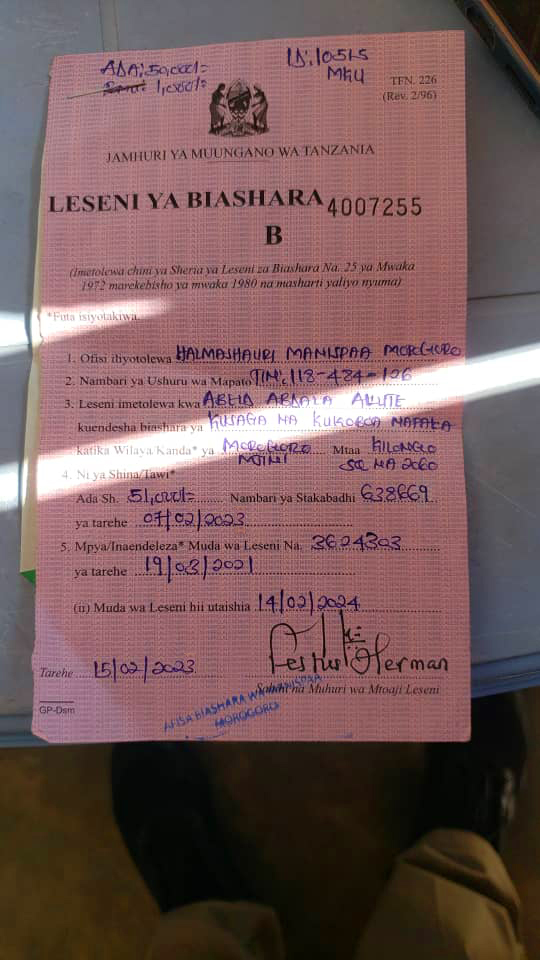 ADA: 50,000/=
1,000/=
ID: 10515
MKU
TFN. 226
(Rev. 2/96)
JAMHURI YA MUUNGANO WA TANZANIA
LESENI YA BIASHARA 4007255
B
(Imetolewa chini ya Sheria ya Leseni za Biashara Na. 25 ya Mwaka
1972 marekebisho ya mwaka 1980 na masharti yaliyo nyuma)
*Futa isiyotakiwa.
1. Ofisi ihyotolewa HALMASHAURI MANISPAA MOROGORO
2. Nambari ya Ushuru wa Mapato TIN: 118-484-126
3. Leseni imetolewa kwa ABEID ABDALA
kuendesha biashara ya KUSAGA NA KUKOBOA NAFAKA
katika Wilaya Kanda* ya MOROGORO Mtaa KILONGO
MJINI SQ NA 2060
4. Ni ya Shina/Tawi*
Ada Sh. 51,000/= Nambari ya Stakabadhi 638669
ya tarehe 07/02/2023
5. Mpya/Inaendeleza* Muda wa Leseni Na. 3624303
ya tarehe 19/03/2021
(ii) Muda wa Leseni hii utaishia 14/02/2024
Festus Herman
Tarehe 15/02/2023
Sahihi na Muhuri wa Mtoaji Leseni
GP-Dsm
AFISA BIASHARA WA MANISPAA
MOROGORO